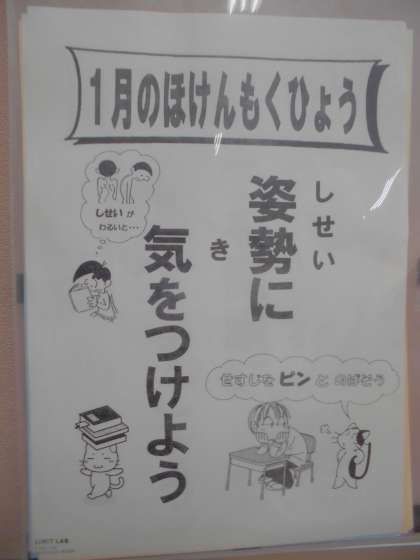 1月のほけんもくひょう
しせい
姿勢に
き
気をつけよう
しせいが
わるいと・・・
せすじを ピン と のばそう